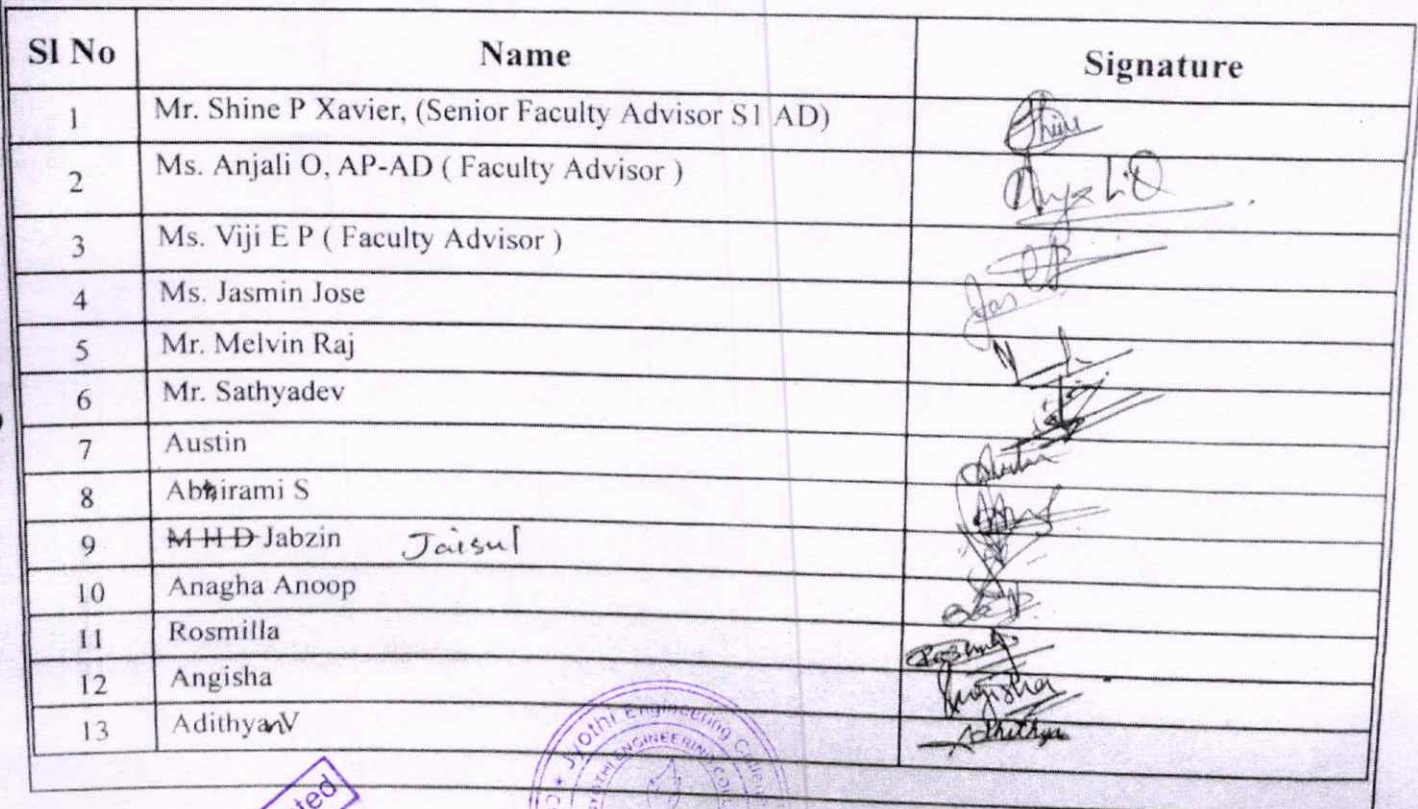 Sl No Name Signature
1 Mr. Shine P Xavier, (Senior Faculty Advisor S1 AD) Shine
2 Ms. Anjali O, AP-AD ( Faculty Advisor )
3 Ms. Viji E P ( Faculty Advisor )
4 Ms. Jasmin Jose
5 Mr. Melvin Raj
6 Mr. Sathyadev
7 Austin Austin
8 Abhirami S
9 M H D Jabzin Jaisul
10 Anagha Anoop
11 Rosmilla
12 Angisha Angisha
13 Adithyan V Adhithya
Jyothi Engineering College
JYOTHI ENGINEERING COLL